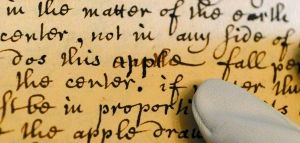 in the matter of the earth
center, not in any side of
dos this apple fall per
the center. if
st be in proporti
t the apple draw